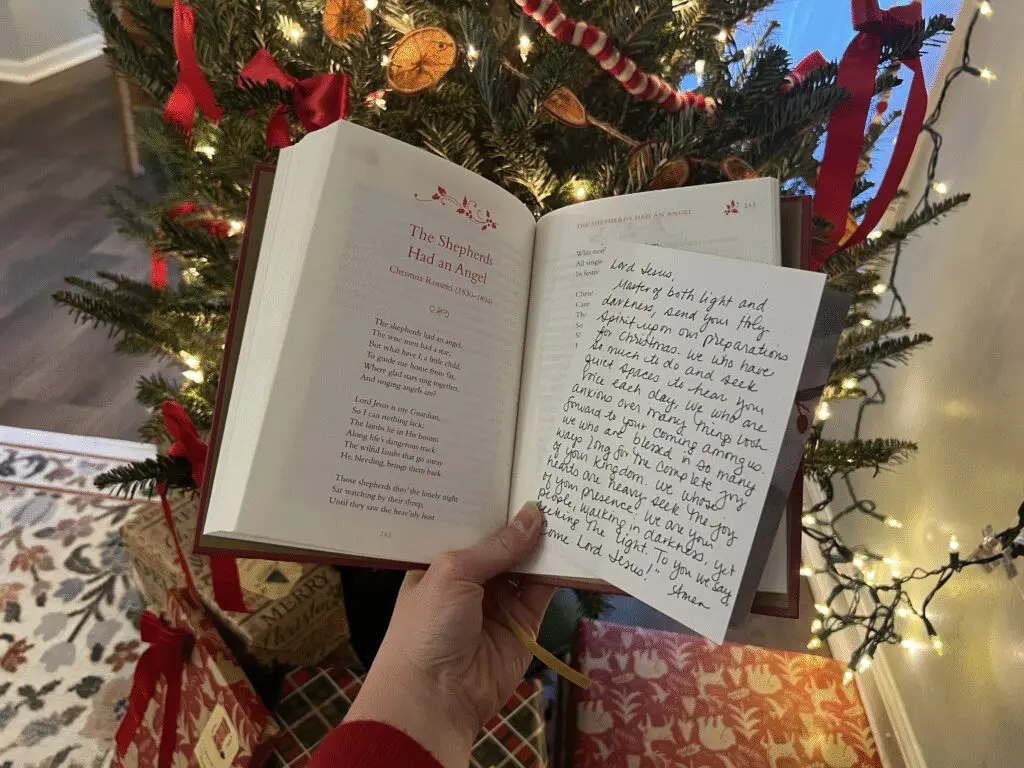 The Shepherds
Had an Angel
Christina Rossetti (1830–1894)
The shepherds had an angel,
The wise men had a star,
But what have I, a little child,
To guide me home from far,
Where glad stars sing together,
And singing angels are?
Lord Jesus is my Guardian,
So I can nothing lack;
The lambs lie in His bosom
Along life's dangerous track:
The wilful lambs that go astray
He, bleeding, brings them back.
Those shepherds thro' the lonely night
Sat watching by their sheep,
Until they saw the heav'nly host
242
THE SHEPHERDS HAD AN ANGEL
243
All
In
Lord Jesus,
Master of both light and
darkness, send your Holy
Spirit upon our preparations
for Christmas. We who have
so much to do and seek
quiet spaces to hear your
voice each day, We who are
anxious over many things look
forward to your coming among us.
We who are blessed in so many
ways long for the complete joy
of your kingdom. We whose
hearts are heavy seek the joy
of your presence. We are your
people, walking in darkness, yet
seeking the light. To you we say,
"Come Lord Jesus!"
Amen
MERRY
Christmas